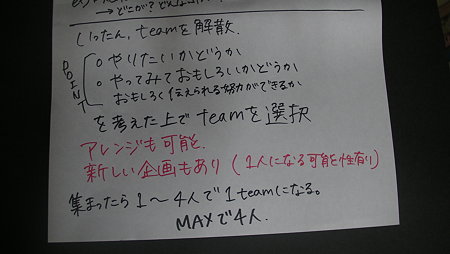 →どこが?どんな
いったん、teamを解散.
POINT
○やりたいかどうか
○やってみておもしろいかどうか
○おもしろく伝えられる努力ができるか
を考えた上でteamを選択
アレンジも可能.
新しい企画もあり(1人になる可能を性有り)
集まったら1〜4人で1teamになる。
MAXで4人.